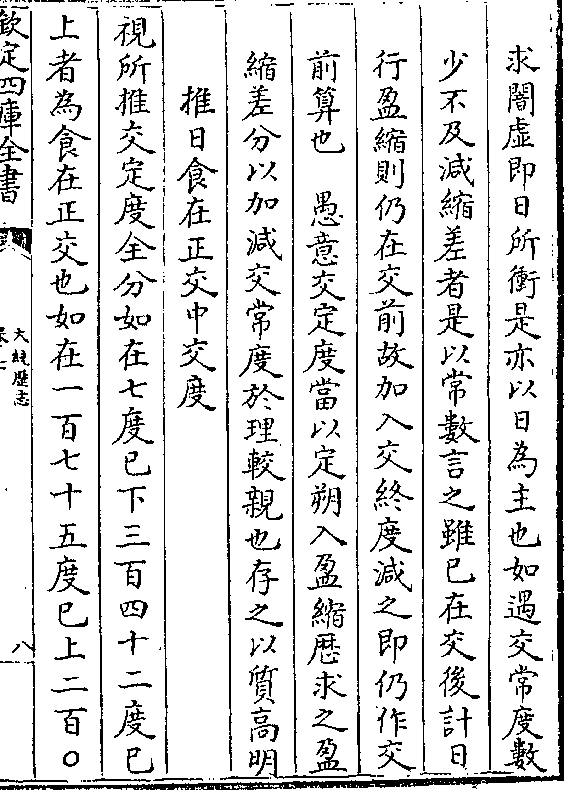 求闇虛即日所衝是亦以日為主也如遇交常度數
少不及減縮差者是以常數言之雖已在交後計日
行盈縮則仍在交前故加入交終度減之即仍作交
前算也　愚意交定度當以定朔入盈縮厯求之盈
縮差分以加減交常度於理較親也存之以質高明
推日食在正交中交度
視所推交定度全分如在七度已下三百四十二度已
上者為食在正交也如在一百七十五度已上二百〇
欽定四庫全書
大統歷志
八